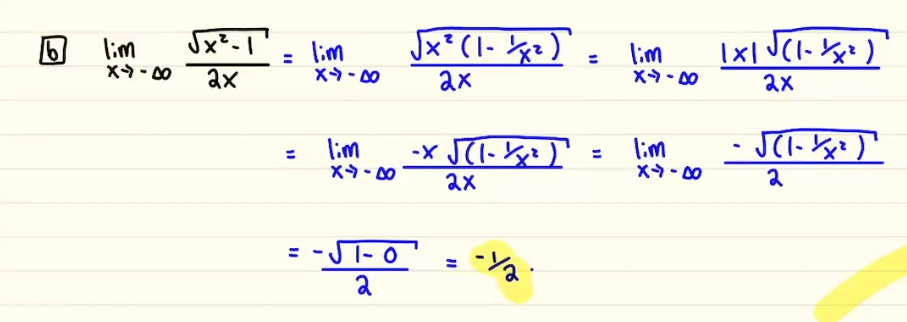 6 lim x→-∞ √(x²-1) / 2x = lim x→-∞ √(x²(1-1/x²)) / 2x = lim x→-∞ |x|√((1-1/x²)) / 2x
= lim x→-∞ -x√((1-1/x²)) / 2x = lim x→-∞ -√((1-1/x²)) / 2
= -√(1-0) / 2 = -1/2.